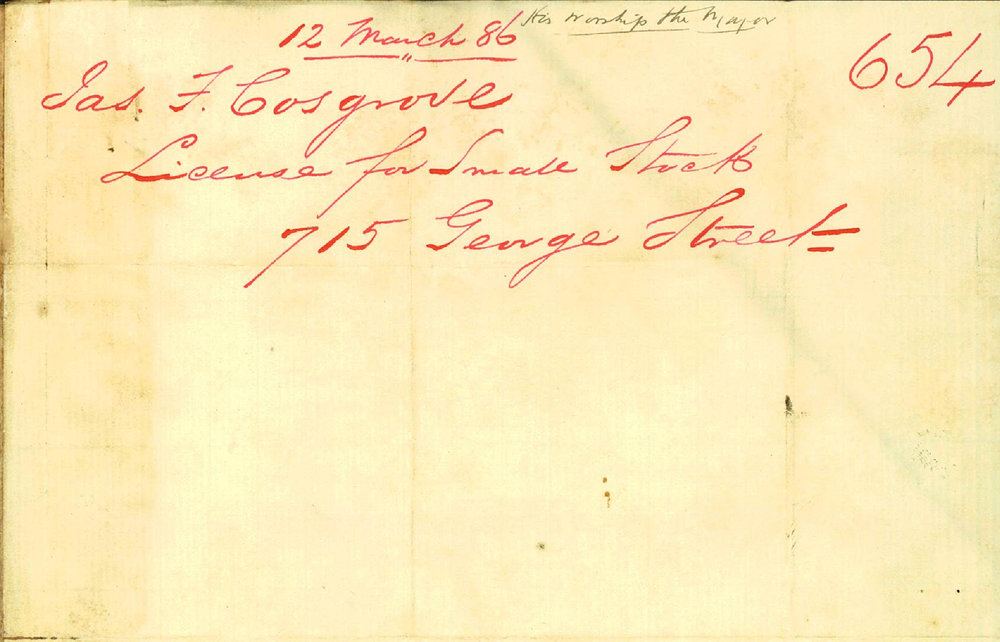 His worship the Mayor
12 March 86
654
Jas. F. Cosgrove
License for Small Stock
715 George Street